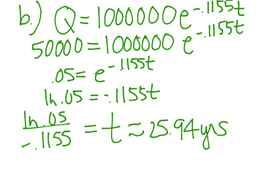 b.) Q = 1000000 e^-.1155t
50000 = 1000000 e^-.1155t
.05 = e^-.1155t
ln .05 = -.1155t
ln .05 / -.1155 = t ≈ 25.94 yrs